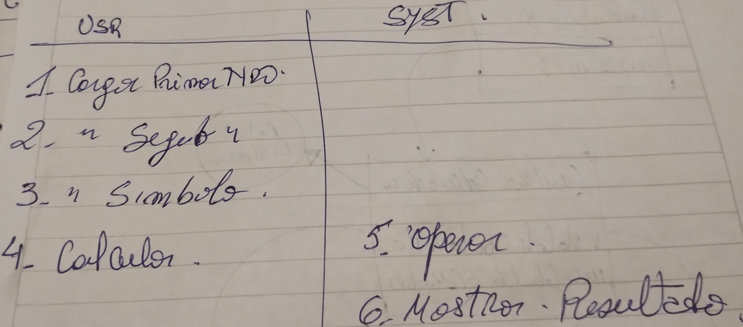 USR
SYST.
1- Cargar Primer NRO.
2- " Segundo "
3- " Simbolo.
4- Calcular.
5. Operar.
6. Mostrar. Resultado.